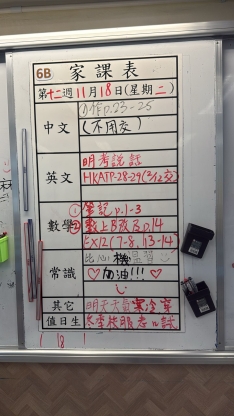 6B 家課表
第十二週11月18日(星期二)
中文
作p.23-25
(不用交)
英文
明考說話
HKATP-28-29(3/12交)
數學
①筆記p.1-3
②數上B放長p.14
EX12(7-8, 13-14)
常識
機溫習
♡加油!!!♡
其它
明天天氣寒冷穿
值日生
冬季校服
18